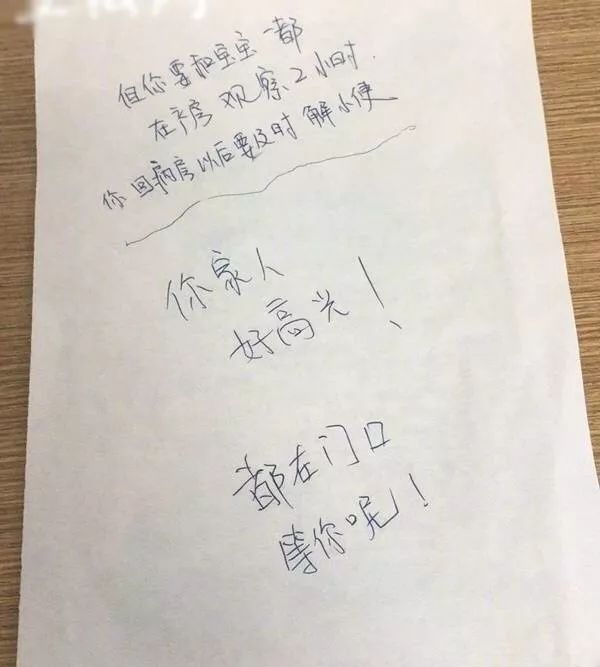 但你要和宝宝一都
在产房观察2小时.
你回病房以后要及时解小便
你家人
好高兴！
都在门口
等你呢！